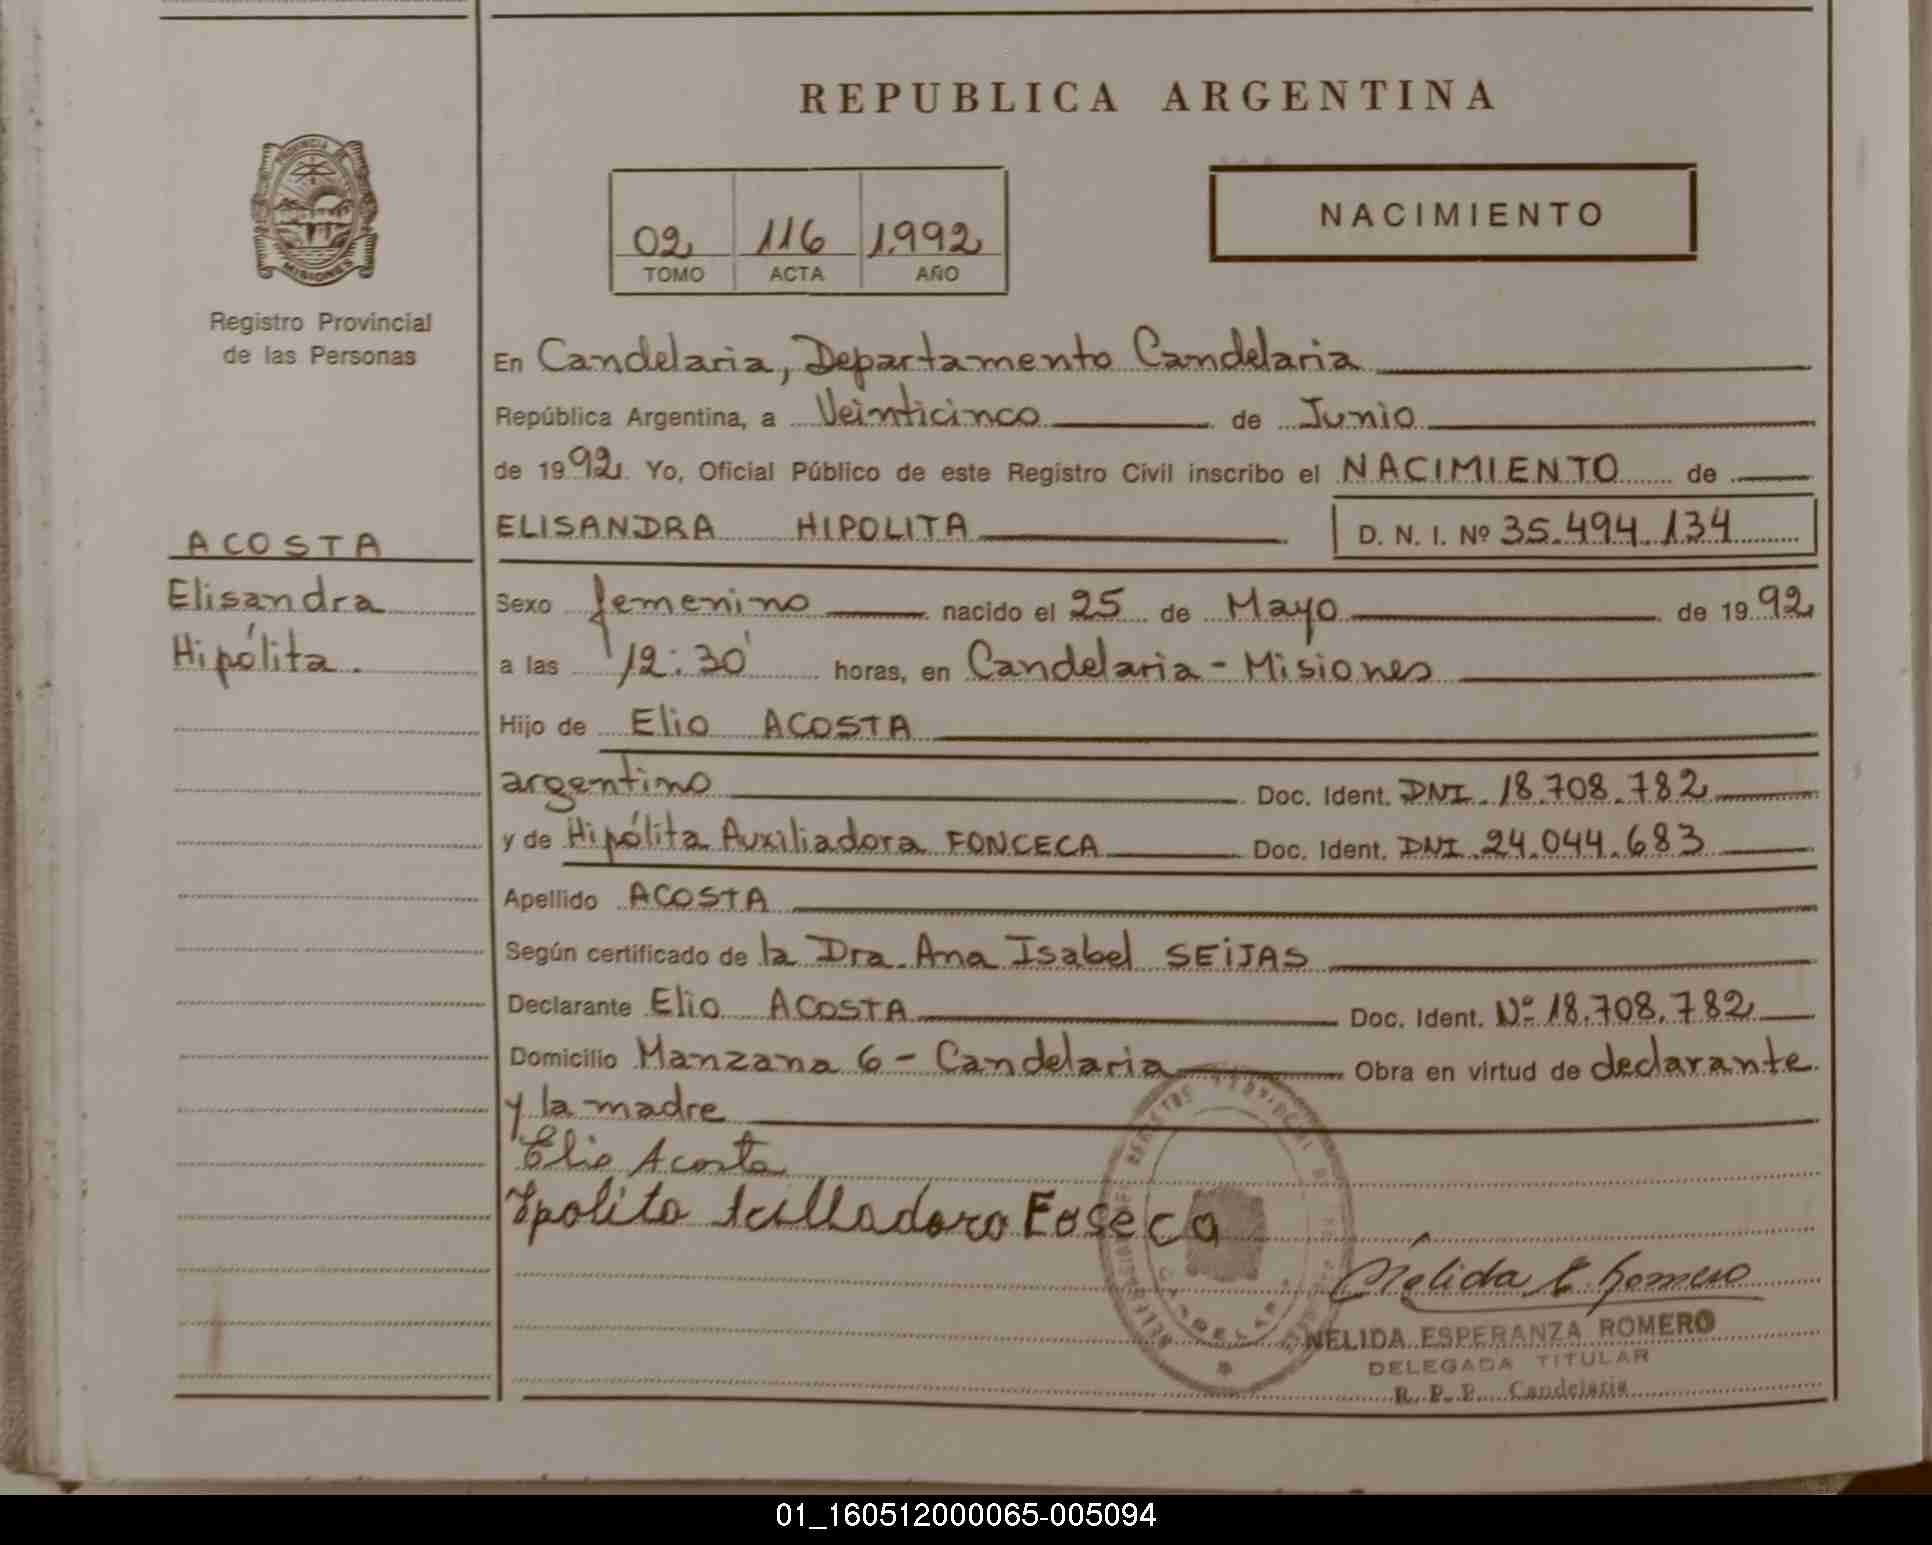 REPUBLICA ARGENTINA
PROVINCIA DE
MISIONES
Registro Provincial
de las Personas
02 116 1.992
TOMO ACTA AÑO
NACIMIENTO
En Candelaria, Departamento Candelaria
República Argentina, a Veinticinco de Junio
de 1992. Yo, Oficial Público de este Registro Civil inscribo el NACIMIENTO de
ELISANDRA HIPOLITA D. N. I. Nº 35.494.134
ACOSTA
Elisandra
Hipólita.
Sexo femenino nacido el 25 de Mayo de 1992
a las 12:30' horas, en Candelaria - Misiones
Hijo de Elio ACOSTA
argentino Doc. Ident. DNI. 18.708.782
y de Hipólita Auxiliadora FONCECA Doc. Ident. DNI. 24.044.683
Apellido ACOSTA
Según certificado de la Dra. Ana Isabel SEIJAS
Declarante Elio ACOSTA Doc. Ident. Nº 18.708.782
Domicilio Manzana 6 - Candelaria Obra en virtud de declarante
y la madre
Elio Acosta
Ypolita Foseca
Nélida E. Romero
NELIDA ESPERANZA ROMERO
DELEGADA TITULAR
R. P. P. Candelaria
01_160512000065-005094